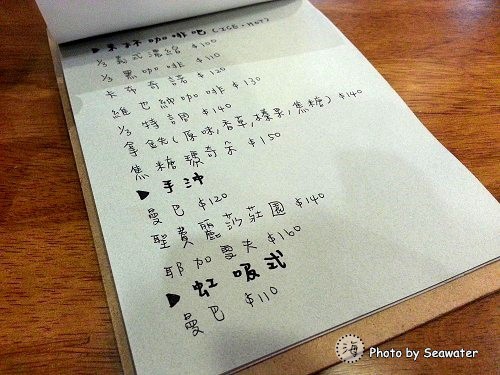 ▶ 來杯咖啡吧 (ICE.HOT)
1/3 義式濃縮 $100
1/3 黑咖啡 $110
卡布奇諾 $120
維也納咖啡 $130
1/3 特調 $140
拿鐵(原味,香草,榛果,焦糖) $140
焦糖瑪奇朵 $150
▶ 手沖
曼巴 $120
聖費麗莎莊園 $140
耶加雪夫 $160
▶ 虹吸式
曼巴 $110
海 Photo by Seawater